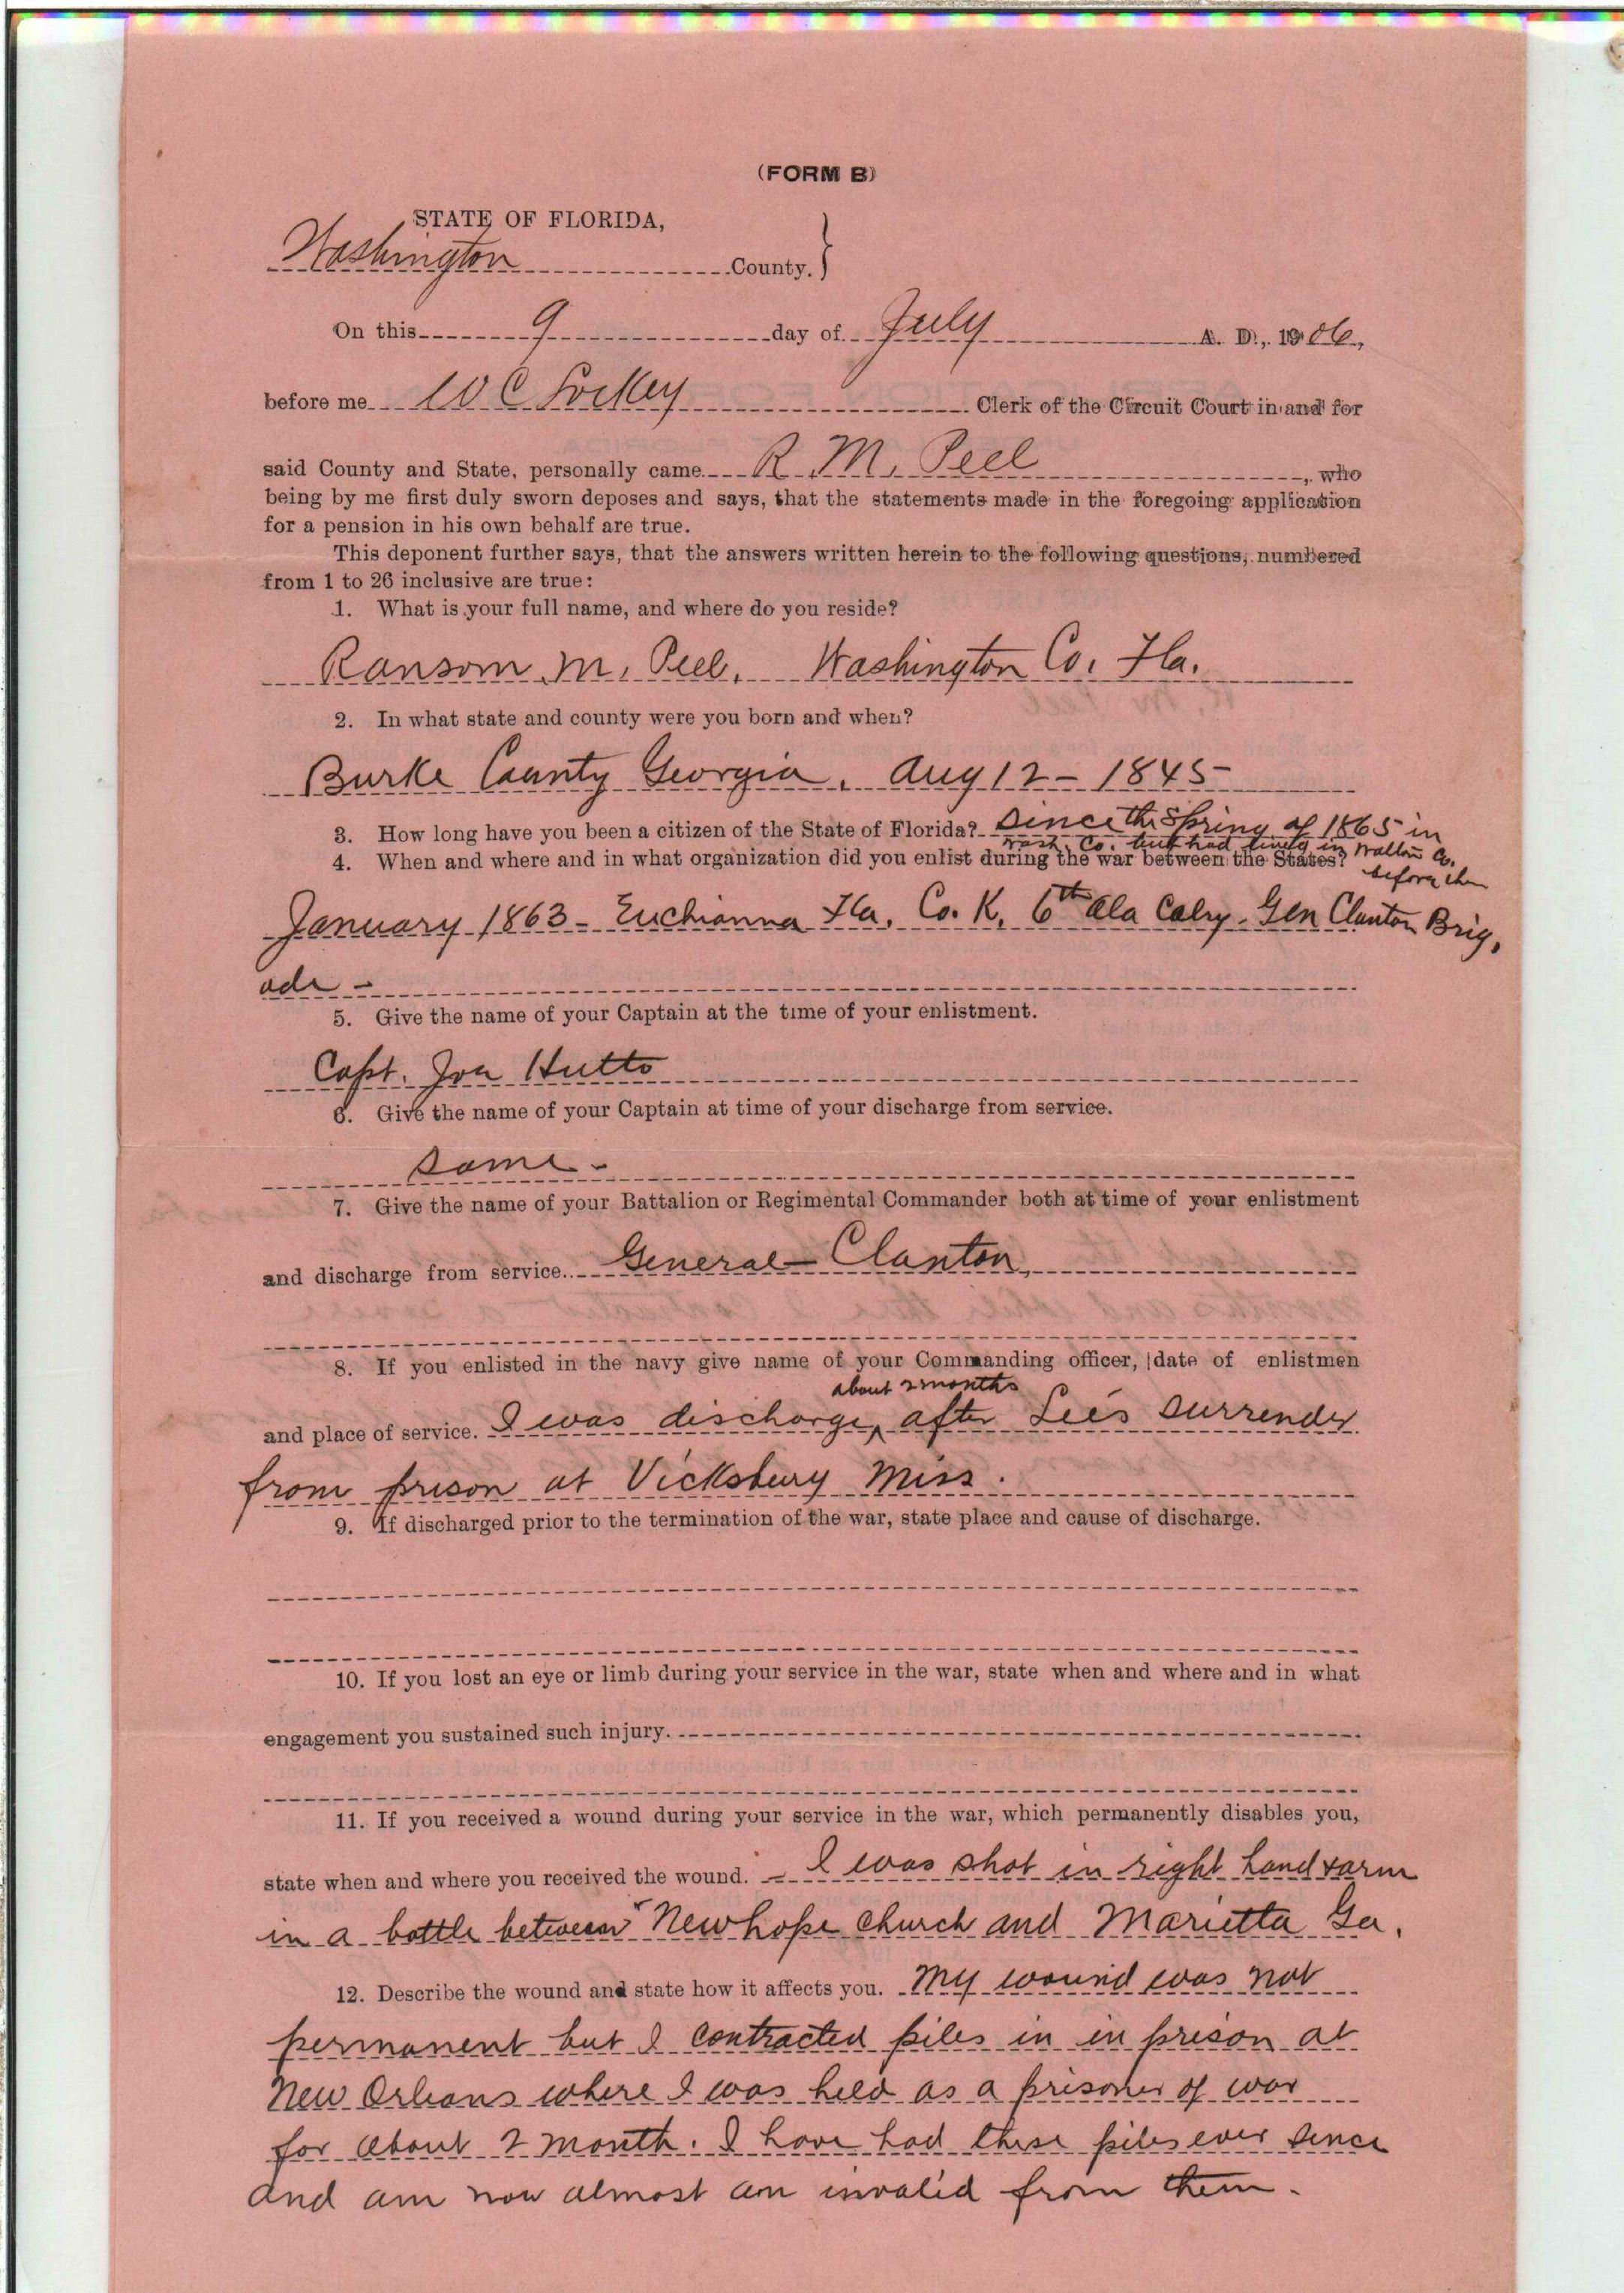 (FORM B)
STATE OF FLORIDA,
Washington County. }
On this 9 day of July A. D., 1906,
before me W C Lockey Clerk of the Circuit Court in and for
said County and State, personally came R. M. Peel, who
being by me first duly sworn deposes and says, that the statements made in the foregoing application
for a pension in his own behalf are true.
This deponent further says, that the answers written herein to the following questions, numbered
from 1 to 26 inclusive are true:
1. What is your full name, and where do you reside?
Ransom M. Peel, Washington Co. Fla.
2. In what state and county were you born and when?
Burke County Georgia, Aug 12 - 1845
3. How long have you been a citizen of the State of Florida? Since the Spring of 1865 in
Wash. Co. but had lived in Walton Co.
before then
4. When and where and in what organization did you enlist during the war between the States?
January 1863 - Euchianna Fla. Co. K. 6th Ala Calry. Gen Clanton Brig,
ade -
5. Give the name of your Captain at the time of your enlistment.
Capt. Joe Hutto
6. Give the name of your Captain at time of your discharge from service.
Same -
7. Give the name of your Battalion or Regimental Commander both at time of your enlistment
and discharge from service. General Clanton,
8. If you enlisted in the navy give name of your Commanding officer, date of enlistmen
about 2 months
and place of service. I was discharge after Lee's Surrender
from prison at Vicksburg Miss.
9. If discharged prior to the termination of the war, state place and cause of discharge.
10. If you lost an eye or limb during your service in the war, state when and where and in what
engagement you sustained such injury.
11. If you received a wound during your service in the war, which permanently disables you,
state when and where you received the wound. - I was shot in right hand & arm
in a battle between New hope church and Marietta Ga.
12. Describe the wound and state how it affects you. My wound was not
permanent but I contracted piles in in prison at
New Orleans where I was held as a prisoner of war
for about 2 month. I have had these piles ever since
and am now almost an invalid from them.